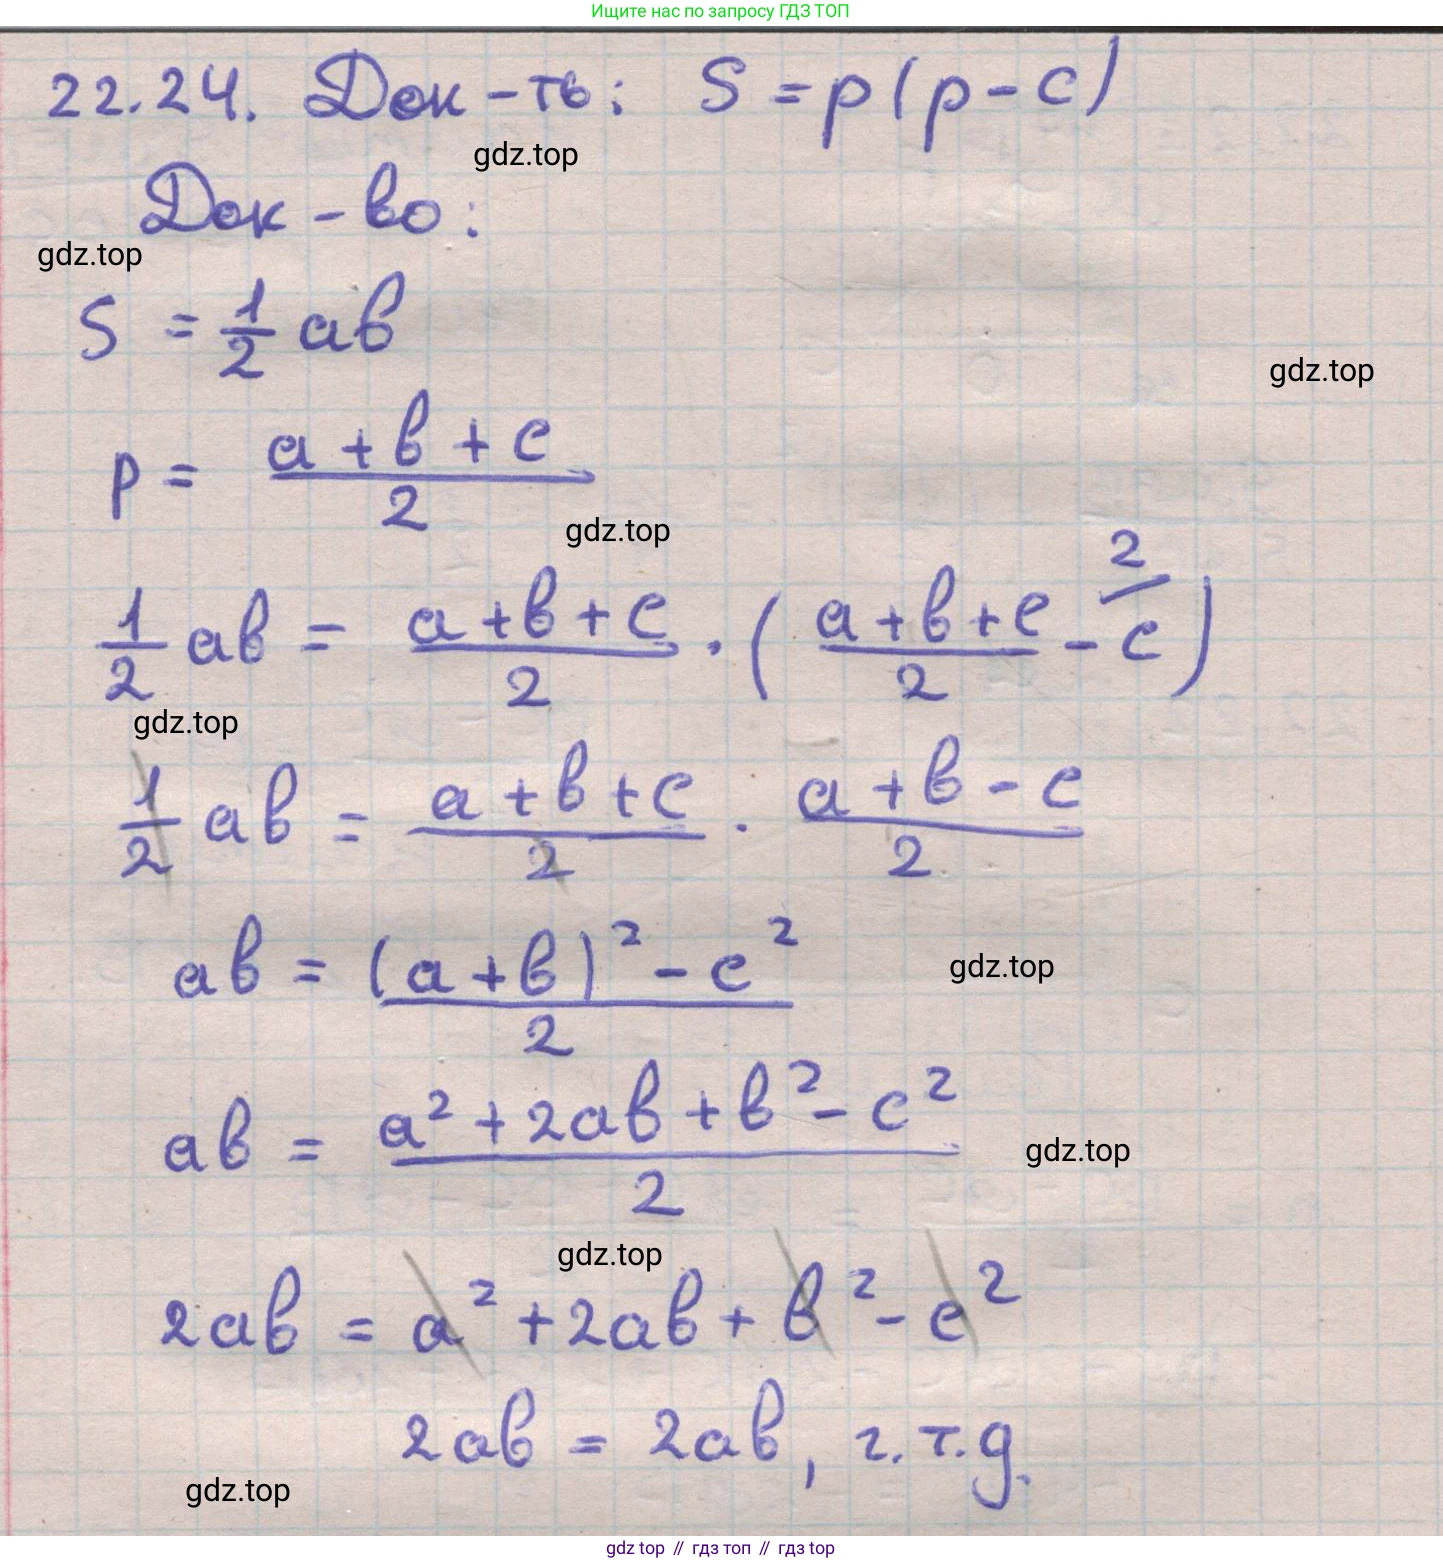 Ищите нас по запросу ГДЗ ТОП
22.24. Док-ть: S = p(p - c)
gdz.top
Док-во:
gdz.top
S = 1/2 ab
gdz.top
p = (a + b + c)/2
gdz.top
1/2 ab = (a + b + c)/2 · ((a + b + c)/2 - c) 2/
gdz.top
1/2 ab = (a + b + c)/2 · (a + b - c)/2
ab = ((a + b)² - c²)/2
gdz.top
ab = (a² + 2ab + b² - c²)/2
gdz.top
gdz.top
2ab = a² + 2ab + b² - c²
2ab = 2ab, ч.т.д.
gdz.top
gdz top // гдз топ // гдз top